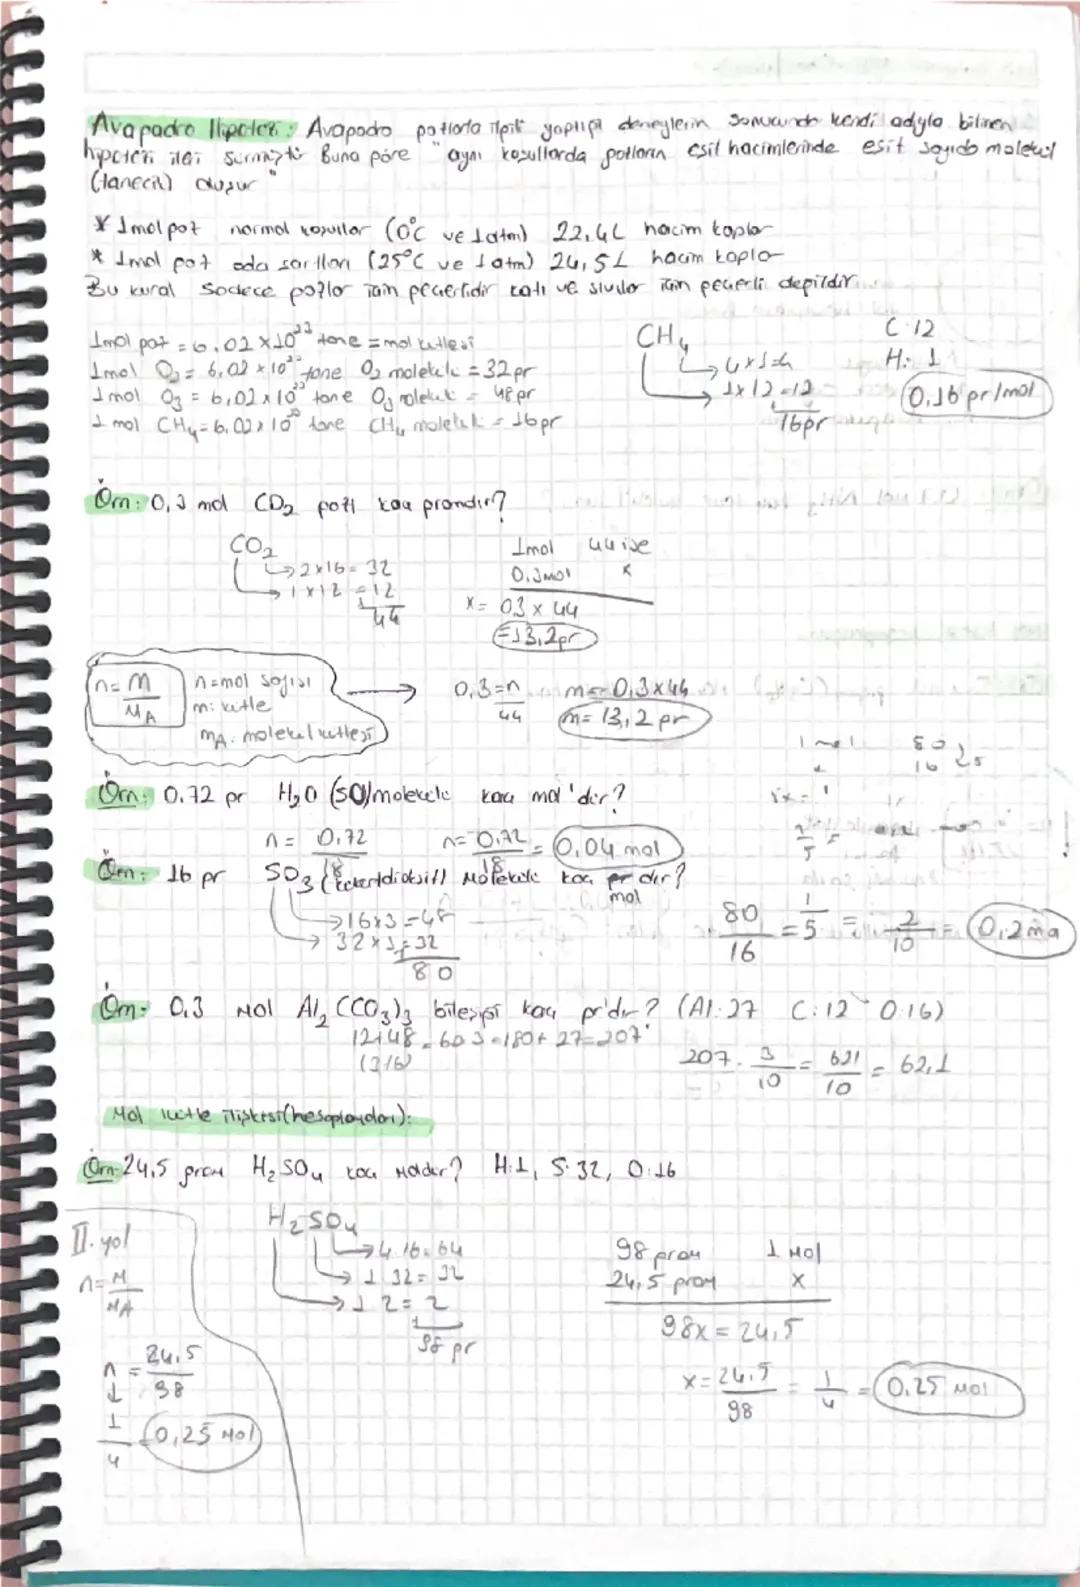 Avagadro Hipotezi: Avagadro gazlarla ilgili yaptığı deneylerin sonucunda kendi adıyla bilinen
hipotezi ileri sürmüştür Buna göre "aynı koşullarda gazların eşit hacimlerinde eşit sayıda molekül
(tanecik) bulunur"
* 1 mol gaz normal koşullar (0°C ve 1 atm) 22,4L hacim kaplar
* 1 mol gaz oda şartları (25°C ve 1 atm) 24,5L hacim kaplar
Bu kural sadece gazlar için geçerlidir katı ve sıvılar için geçerli değildir.
1mol gaz = 6.02 x 10²³ tane = mol kütlesi
1mol O₂ = 6,02 x 10²³ tane O₂ molekülü = 32 gr
1mol O₃ = 6,02 x 10²³ tane O₃ molekülü = 48 gr
1 mol CH₄ = 6,02 x 10²³ tane CH₄ molekülü = 16 gr
CH₄
4x1=4
1x12=12
16gr
C:12
H: 1
0,16 gr/mol
Örn: 0,3 mol CO₂ gazı kaç gramdır?
CO₂
2x16=32
1x12=12
44
1mol 44 ise
0,3mol x
x= 03 x 44
=13,2gr
n= m
MA
n=mol sayısı
m: kütle
mA: molekül kütlesi
0,3=n
44
m= 0,3x44
m= 13,2 gr
Örn: 0.72 gr H₂O (su) molekülü kaç mol'dür?
n = 0,72
18
n= 0,72 = 0,04 mol
18
Örn: 16 gr SO₃ molekülü kaç gr dır?
mol
16x3=48
32x1=32
80
80 = 1 = 2 = 0,2
16 5 10
Örn: 0,3 mol Al₂(CO₃)₃ bileşiği kaç gr'dır? (Al:27 C:12 O:16)
12+48=60.3=180+27=207
(3.16)
207 . 3 = 621 = 62,1
10 10
Mol kütle ilişkisi(hesaplamaları):
Örn: 24,5 gram H₂SO₄ kaç moldür? H:1, S:32, O:16
H₂SO₄
4.16=64
1 32=32
1 2=2
98 gr
98 gram 1 mol
24,5 gram x
98x = 24,5
x= 24,5 = 1 = 0,25 mol
98 4
II. yol
n= M
MA
n = 24,5
98
1
4
0,25 mol